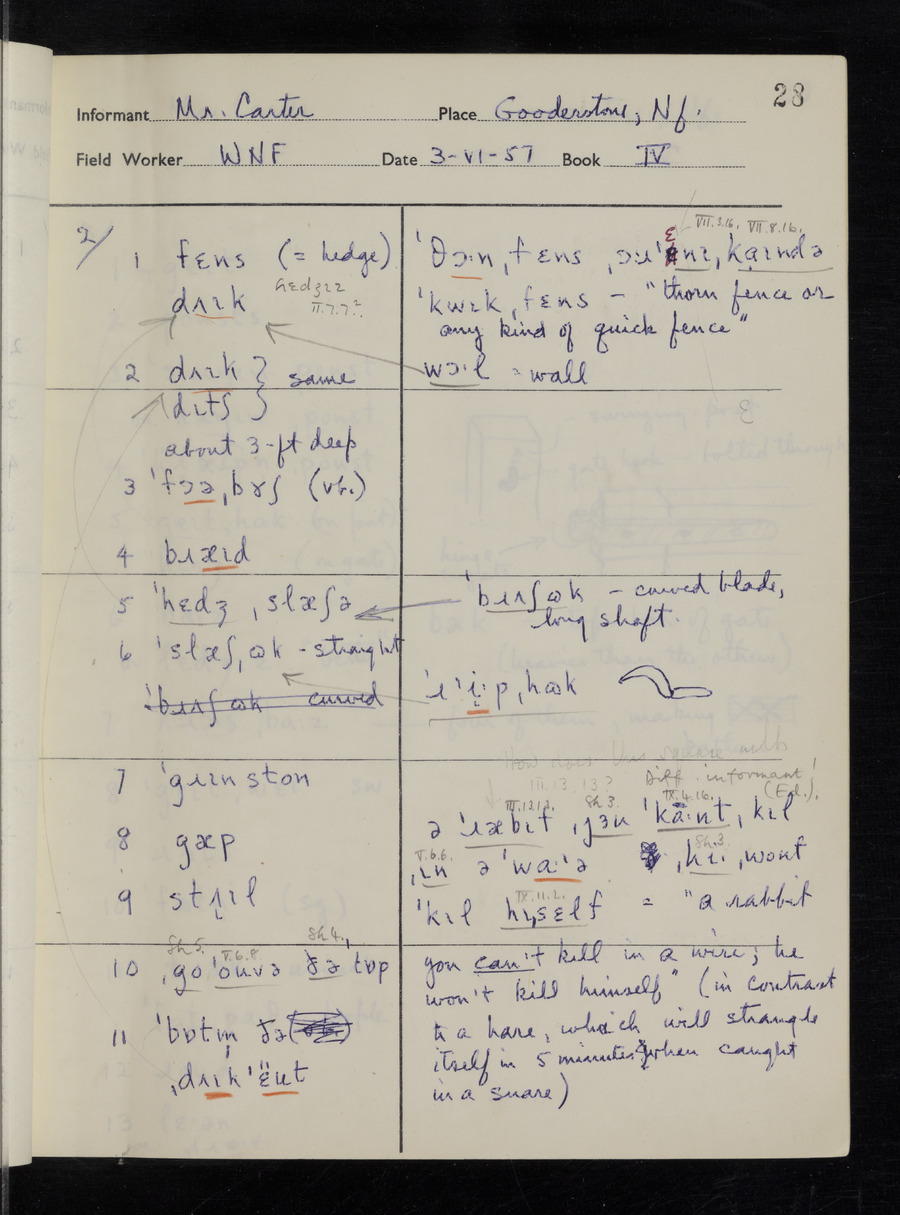 28
Informant Mr. Carter Place Gooderstone, Nf.
Field Worker WNF Date 3-VI-57 Book IV
2/
1 fɛns (= hedge)
dʌɪk
hɛdʒɪz
II.7.7?
2 dʌɪk } same
dɪtʃ }
about 3-ft deep
3 ˈfɔə ˌbɤʃ (vb.)
4 bɪæɪd
5 ˈhɛdʒ ˌslæʃə
6 ˈslæʃ ˌɷk - straight
ˈbɪʌʃ ɷk curved
7 ˈgɹɪnston
8 gæp
9 stɪɪl
Sh 5. V.6.8. Sh 4.
10 ˌgo ˈouvə ðə tɒp
11 ˈbɒtm̩ ðə
ˌdʌɪk ˈɛut
VII.3.16. VII.8.16.
ɛ
ˈθɔːn ˌfɛns ˌɔɹ ˈɛnɪ ˌkaɪndə
ˈkwɪk ˌfɛns - "thorn fence or
any kind of quick fence"
wɔːl = wall
ˈbɪʌʃ ɷk - curved blade,
long shaft.
ˈɹiːp ˌhɷk
How does this square with
III.13.13? Diff. informant!
(Ed.).
III.13.13. Sh 3. IX.4.16.
ə ˈɹæbɪt ˌjɜn ˈkɑːnt ˌkɪl
V.6.6. Sh.3.
ˌɪn ə ˈwaˑə ˌhɪ ˌwont
IX.11.2.
ˈkɪl hɪˌsɛlf = "a rabbit
you can't kill in a wire; he
won't kill himself" (in contrast
to a hare, which will strangle
itself in 5 minutes when caught
in a snare)